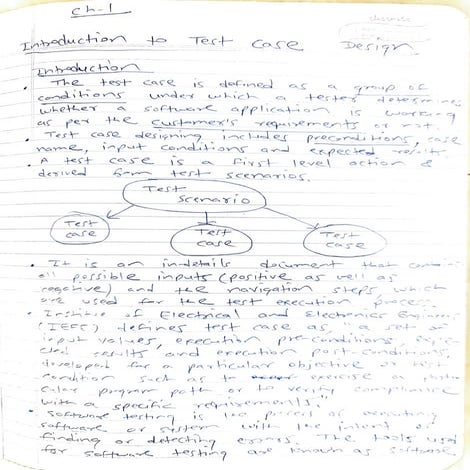 Ch-1
Introduction to Test Case Design
Introduction
• The test case is defined as a group of
conditions under which a tester determines
whether a software application is working
as per the customer's requirements or not.
• Test case designing includes preconditions, case
name, input conditions and expected result
• A test case is a first level action &
derived from test scenarios.
Test
Scenario
Test
case
Test
case
Test
case
• It is an in-details document that contains
all possible inputs (positive as well as
negative) and the navigation steps, which
are used for the test execution process.
• Institute of Electrical and Electronics Engineers
(IEEE) defines test case as, "a set of
input values, execution pre-conditions, expe-
cted results and execution post-conditions,
developed for a particular objective or test
condition such as to exercise a
program path or to verify compliance
with a specific requirements."
• Software testing is the process of executing
software or system with the intent of
finding or detecting errors. The tools used
for software testing are known as software